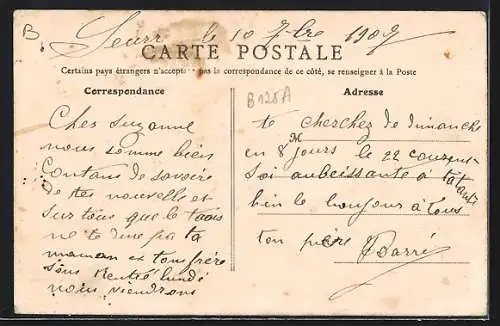 B
Seurr le 10 7bre 1909
CARTE POSTALE
Certains pays étrangers n'accepte pas la correspondance de ce côté, se renseigner à la Poste
Correspondance
Adresse
B128A
Cher suzanne
nous somme bien
Contans de savoire
de tes nouvelle et
surtous que le taus
ne te dure pa ta
maman et tons frère
sons Rentré lundi
nous viendrons
te cherchez de dimanche
en 8 jours le 22 couzent
soi aubeissante à ta tante
bin le bonjour à tous
ton père Barré